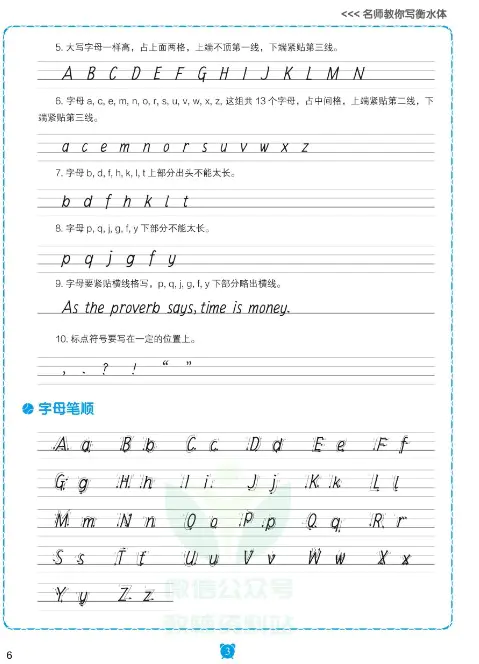 <<< 名师教你写衡水体
5. 大写字母一样高，占上面两格，上端不顶第一线，下端紧贴第三线。
A B C D E F G H I J K L M N
6. 字母 a, c, e, m, n, o, r, s, u, v, w, x, z, 这组共 13 个字母，占中间格，上端紧贴第二线，下
端紧贴第三线。
a c e m n o r s u v w x z
7. 字母 b, d, f, h, k, l, t 上部分出头不能太长。
b d f h k l t
8. 字母 p, q, j, g, f, y 下部分不能太长。
p q j g f y
9. 字母要紧贴横线格写，p, q, j, g, f, y 下部分略出横线。
As the proverb says, time is money.
10. 标点符号要写在一定的位置上。
, . ? ! “ ”
字母笔顺
A a B b C c D d E e F f
G g H h I i J j K k L l
M m N n O o P p Q q R r
S s T t U u V v W w X x
Y y Z z
微信公众号
3
6